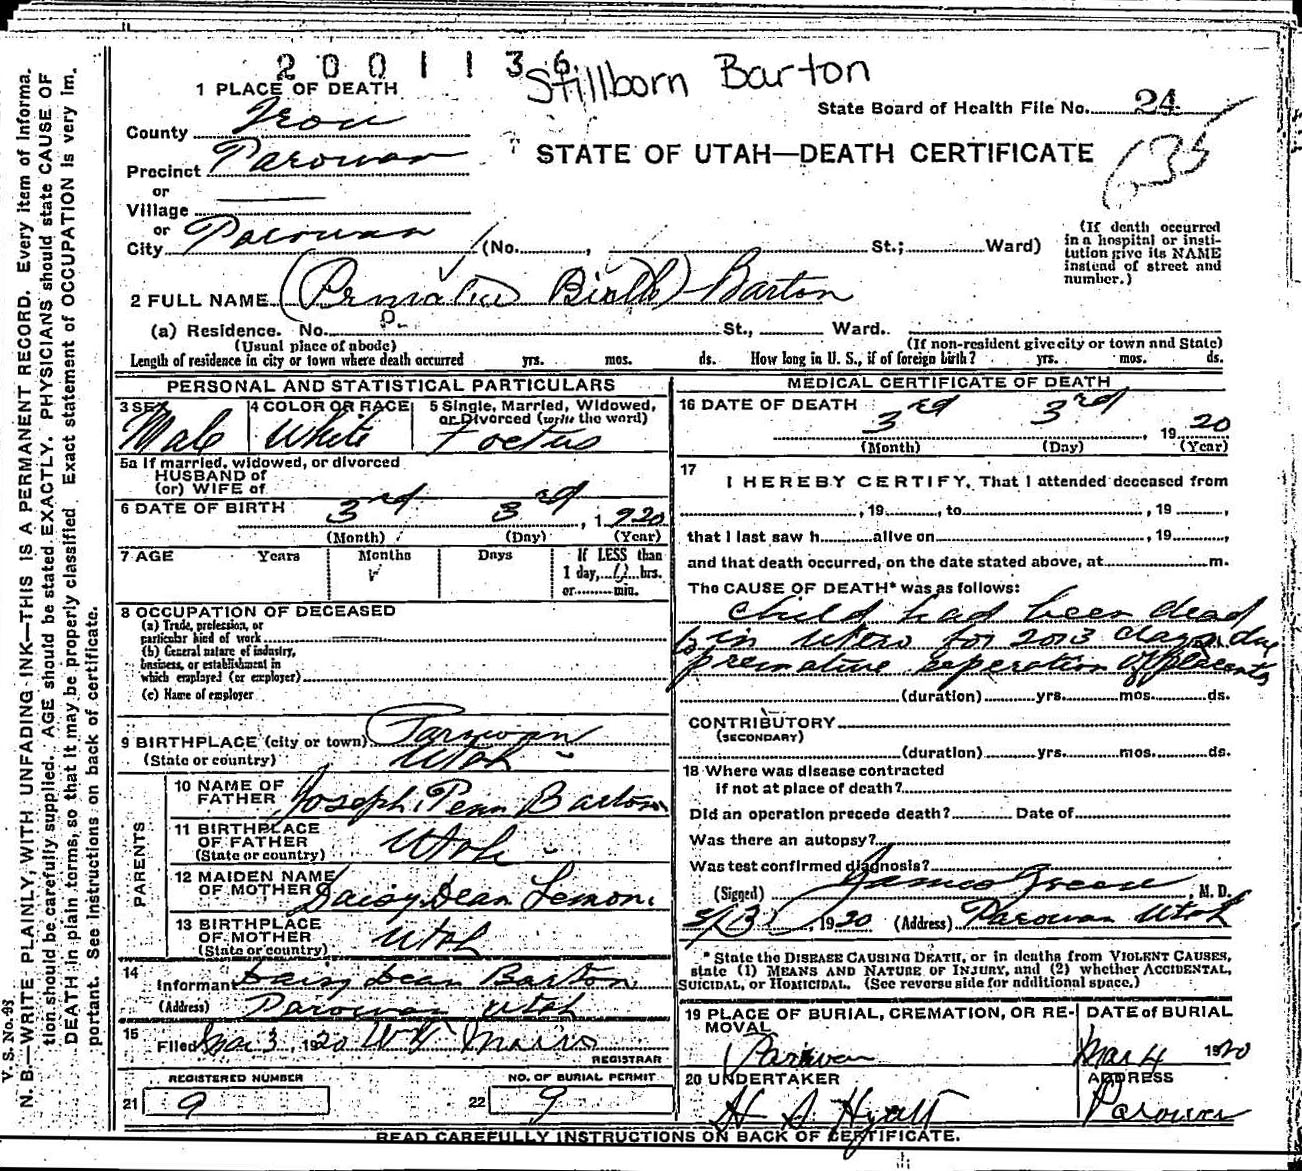 2001136
Stillborn Barton
1 PLACE OF DEATH
State Board of Health File No. 24
County Iron
635
STATE OF UTAH—DEATH CERTIFICATE
Precinct Parowan
or
Village
or
City Parowan (No. , St.; Ward)
(If death occurred
in a hospital or insti-
tution give its NAME
instead of street and
number.)
2 FULL NAME (Premature Birth) Barton
(a) Residence. No. St., Ward.
(Usual place of abode)
(If non-resident give city or town and State)
Length of residence in city or town where death occurred yrs. mos. ds. How long in U. S., if of foreign birth? yrs. mos. ds.
PERSONAL AND STATISTICAL PARTICULARS
3 SEX
Male
4 COLOR OR RACE
White
5 Single, Married, Widowed,
or Divorced (write the word)
Foetus
5a If married, widowed, or divorced
HUSBAND of
(or) WIFE of
6 DATE OF BIRTH 3rd 3rd, 1920
(Month) (Day) (Year)
7 AGE Years Months Days If LESS than
1 day, 0 hrs.
or min.
8 OCCUPATION OF DECEASED
(a) Trade, profession, or
particular kind of work
(b) General nature of industry,
business, or establishment in
which employed (or employer)
(c) Name of employer
9 BIRTHPLACE (city or town) Parowan
(State or country) Utah
PARENTS
10 NAME OF
FATHER Joseph Penn Barton
11 BIRTHPLACE
OF FATHER
(State or country) Utah
12 MAIDEN NAME
OF MOTHER Daisy Dean Lemon.
13 BIRTHPLACE
OF MOTHER
(State or country) Utah
14
Informant Daisy Dean Barton
(Address) Parowan Utah
15
Filed Mar 3, 1920
REGISTRAR
REGISTERED NUMBER
21 9
NO. OF BURIAL PERMIT
22 9
MEDICAL CERTIFICATE OF DEATH
16 DATE OF DEATH 3rd 3rd, 1920
(Month) (Day) (Year)
17
I HEREBY CERTIFY, That I attended deceased from
, 19 , to , 19 ,
that I last saw h alive on , 19 ,
and that death occurred, on the date stated above, at m.
The CAUSE OF DEATH* was as follows:
Child had been dead
in utero for 2 or 3 days due
to premature seperation of placenta
(duration) yrs. mos. ds.
CONTRIBUTORY
(SECONDARY)
(duration) yrs. mos. ds.
18 Where was disease contracted
if not at place of death?
Did an operation precede death? Date of
Was there an autopsy?
Was test confirmed diagnosis?
(Signed) James Green, M. D.
, 1920 (Address) Parowan Utah
* State the DISEASE CAUSING DEATH, or in deaths from VIOLENT CAUSES,
state (1) MEANS AND NATURE OF INJURY, and (2) whether ACCIDENTAL,
SUICIDAL, or HOMICIDAL. (See reverse side for additional space.)
19 PLACE OF BURIAL, CREMATION, OR RE-
MOVAL
Parowan
DATE of BURIAL
Mar 4 1920
20 UNDERTAKER
H S Hyatt
ADDRESS
Parowan
READ CAREFULLY INSTRUCTIONS ON BACK OF CERTIFICATE.
V. S. No. 93
N. B—WRITE PLAINLY, WITH UNFADING INK—THIS IS A PERMANENT RECORD. Every item of Informa-
tion should be carefully supplied. AGE should be stated EXACTLY. PHYSICIANS should state CAUSE OF
DEATH in plain terms, so that it may be properly classified. Exact statement of OCCUPATION is very im-
portant. See instructions on back of certificate.